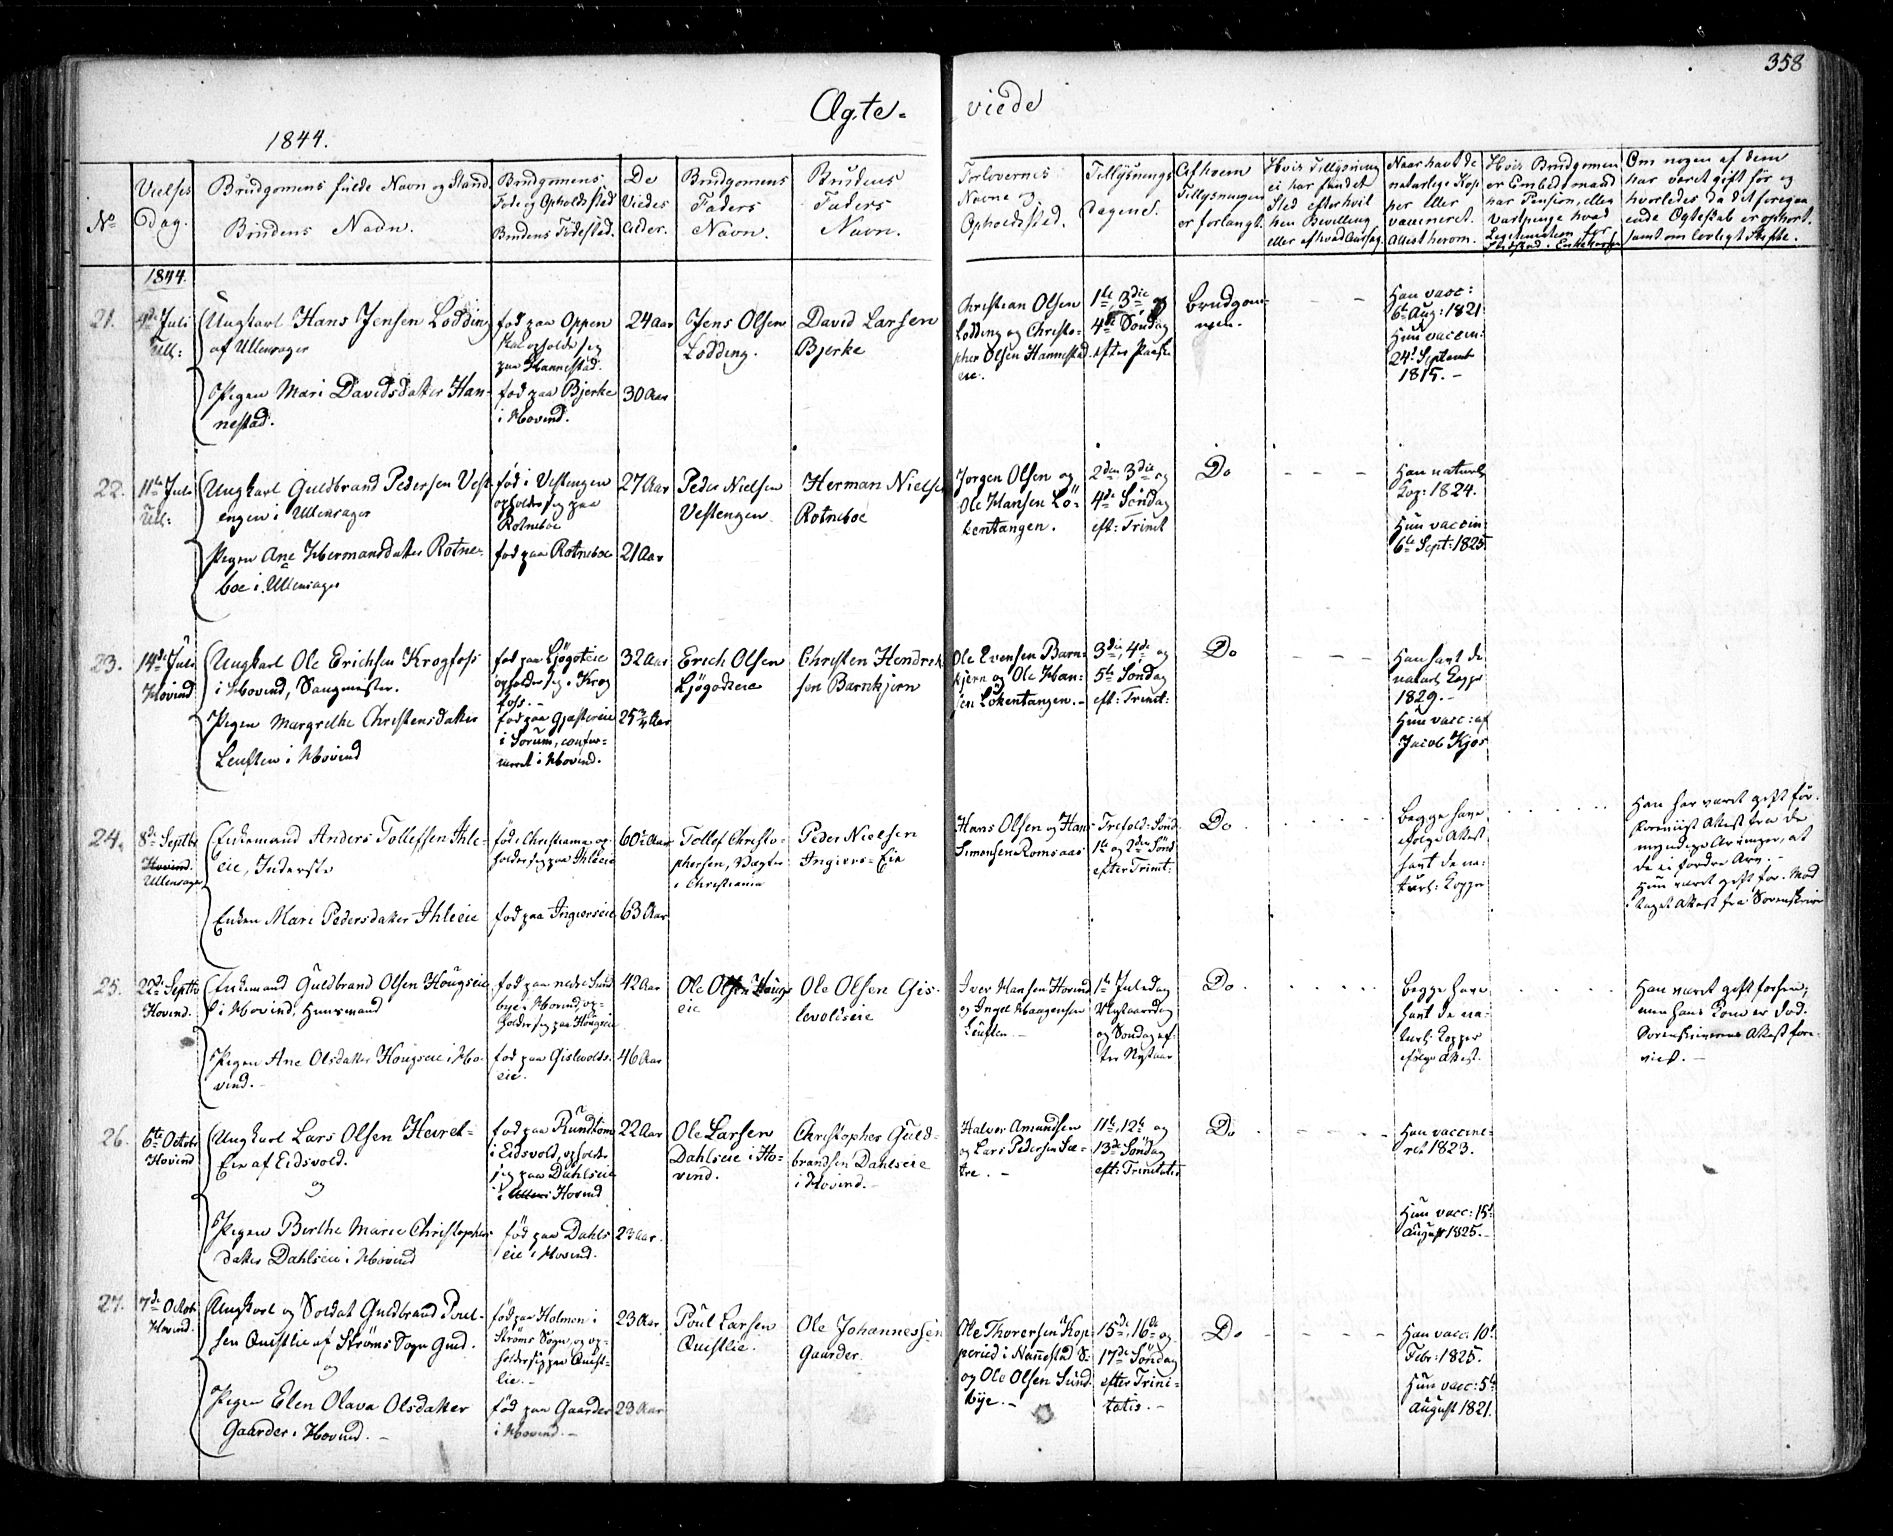 358
Ægte- viede
1844.
No
Vielses Dag.
Brudgomens fulde Navn og Stand
Brudens Navn.
Brudgomens Føde og Opholdssted
Brudens Fødested.
De Viedes Alder.
Brudgomens Faders Navn.
Brudens Faders Navn.
Forlovernes Navne og Opholdssted.
Tillysnings Dagene.
Af hvem Tillysningen er forlangt.
Hvis Tillysning ei har fundet Sted efter hvilken Bevilling eller af hvad Aarsag
Naar havt de naturlige Kopper eller vaccineret. Attest herom.
Hvis Brudgomen er Embedsmand har Pension, eller Vartpenge hvad Legitimation for Indskud i Enkekassen
Om nogen af dem har været gift før og hvorledes da det foregaaende Ægteskab er ophørt, samt om lovligt Skifte.
1844.
21.
4de Juli
Ull:
Ungkarl Hans Jensen Lodding
af Ullensager
Pigen Mari Davidsdatter Han-
nestad.
fød paa Oppen
opholder sig
paa Hannestad.
fød paa Bjerke
i Hovind.
24 Aar
30 Aar
Jens Olsen
Lodding.
David Larsen
Bjerke
Christian Olsen
Lodding og Christo-
pher Olsen Hannestad-
eie.
1ste, 3die og
4de Søndag
efter Paaske
Brudgom-
men.
Han vacc:
6te Aug: 1821
Hun vaccin:
24d Septembr
1815. -
22.
11te Juli
Ull:
Ungkarl Guldbrand Pedersen Vest-
engen i Ullensager
Pigen Ane Hermansdatter Rotne-
boe i Ullensager
fød i Vestengen
opholder sig paa
Rotneboe
fød paa Rotneboe
27 Aar
21 Aar
Peder Nielsen
Vestengen
Herman Nielsen
Rotneboe
Jørgen Olsen og
Ole Hansen Lö-
kentangen.
2den 3die og
4de Søndag
eft: Trinit
Do
Han naturl
Kop: 1824.
Hun vaccin:
6te Sept: 1825.
23.
14de Juli
Hovind
Ungkarl Ole Erichsen Krogfoss
i Hovind, Saugmester.
Pigen Margrethe Christensdatter
i Hovind
fød paa Ljøgoteie
opholder sig i Krog
foss. -
fød paa Gjästereie
i Sorum, confir-
meret i Hovind.
32 Aar
25 3/4 Aar
Erich Olsen
Ljögodteie
Christen Hendrik
sen Barnkjern
Ole Evensen Barn-
kjern og Ole Han-
sen Lökentangen. -
3die, 4de og
5te Søndag
eft: Trinit:
Do
Han havt de
naturl Kopper
1829. -
Hun vacc: af
Jacob Kjos
24.
8de Septbr
Hovind.
Ullensager
Enkemand Anders Tollefsen Ihle-
eie, Inderste
Enken Mari Pedersdatter Ihleeie
fød i Christiania op-
holder sig paa Ihleeie
fød paa Ingierseie
60 1/2 Aar
63 Aar
Tollef Christo-
phersen, Vægter
i Christiania
Peder Nielsen
Ingiers-Eie
Hans Olsen og Hans
Simensen Romsaas
Trefold: Sönd
1te og 2den Sönd
efter Trinit:
Do
Begge have
ifölge Attest
havt de na-
turl: Kopper
Han har været gift för.
Foreviist Attest fra de
myndige Arvinger, at
de ei fordre Arv. -
Hun været gift før. Mod-
taget Attest fra Sorenskriver
25.
22de Septbr
Hovind.
Enkemand Guldbrand Olsen Hougseie
i Hovind, Huusmand
Pigen Ane Olsdatter Hougseie i Ho-
vind. -
fød paa nedre Sund
bye i Hovind, op-
holder sig paa Hougseie
fød paa Gislevolds-
eie.
42 Aar
46 Aar
Ole Olsen Hougs
eie
Ole Olsen Gis-
levoldseie
Iver Hansen Hovind
og Engel Haagensen
1te Juledag
Nytaarsdag
og Søndag ef-
ter Nytaar
Do.
Begge have
havt de na-
turl: Kopper
ifølge Attest.
Han været gift forhen;
men hans Kone er død.
Sorenskriverens Attest fore-
viist. -
26.
6te Octobr
Hovind
Ungkarl Lars Olsen Heiret-
Eie af Eidsvold.
og
Pigen Berthe Marie Christophers
datter Dahlseie i Hovind
fød paa Rundtom
i Eidsvold, opholder
sig paa Dahlseie
i Hovind
fød paa Dahls
eie i Hovind.
22 Aar
23 Aar.
Ole Larsen
Dahlseie i Ho-
vind.
Christopher Guld-
brandsen Dahlseie
i Hovind. -
Halvor Amundsen
og Lars Pedersen Sæ-
tre. -
11te, 12te og
13de Søndag
eft: Trinitatis
Do
Han vaccine-
ret 1823.
Hun vacc: 15d
August 1825. -
27.
7de Octobr
Hovind.
Ungkarl og Soldat Guldbrand Poul-
sen Quistlie af Strøms Sogn Gmd.
og
Pigen Elen Olava Olsdatter
Gaarder i Hovind. -
fød paa Holmen i
Strøms Sogn, og op-
holder sig paa Quist-
lie. -
fød paa Gaarder
i Hovind. -
23 Aar
23 Aar
Poul Larsen
Quistlie.
Ole Johannessen
Gaarder.
Ole Thorersen Kop-
perud i Nannestad S-
og Ole Olsen Sund-
bye. -
15de, 16de og
17de Søndag
efter Trini-
tatis. -
Do
Han vacc: 10d
Febr: 1825.
Hun vacc: 5te
August 1821.